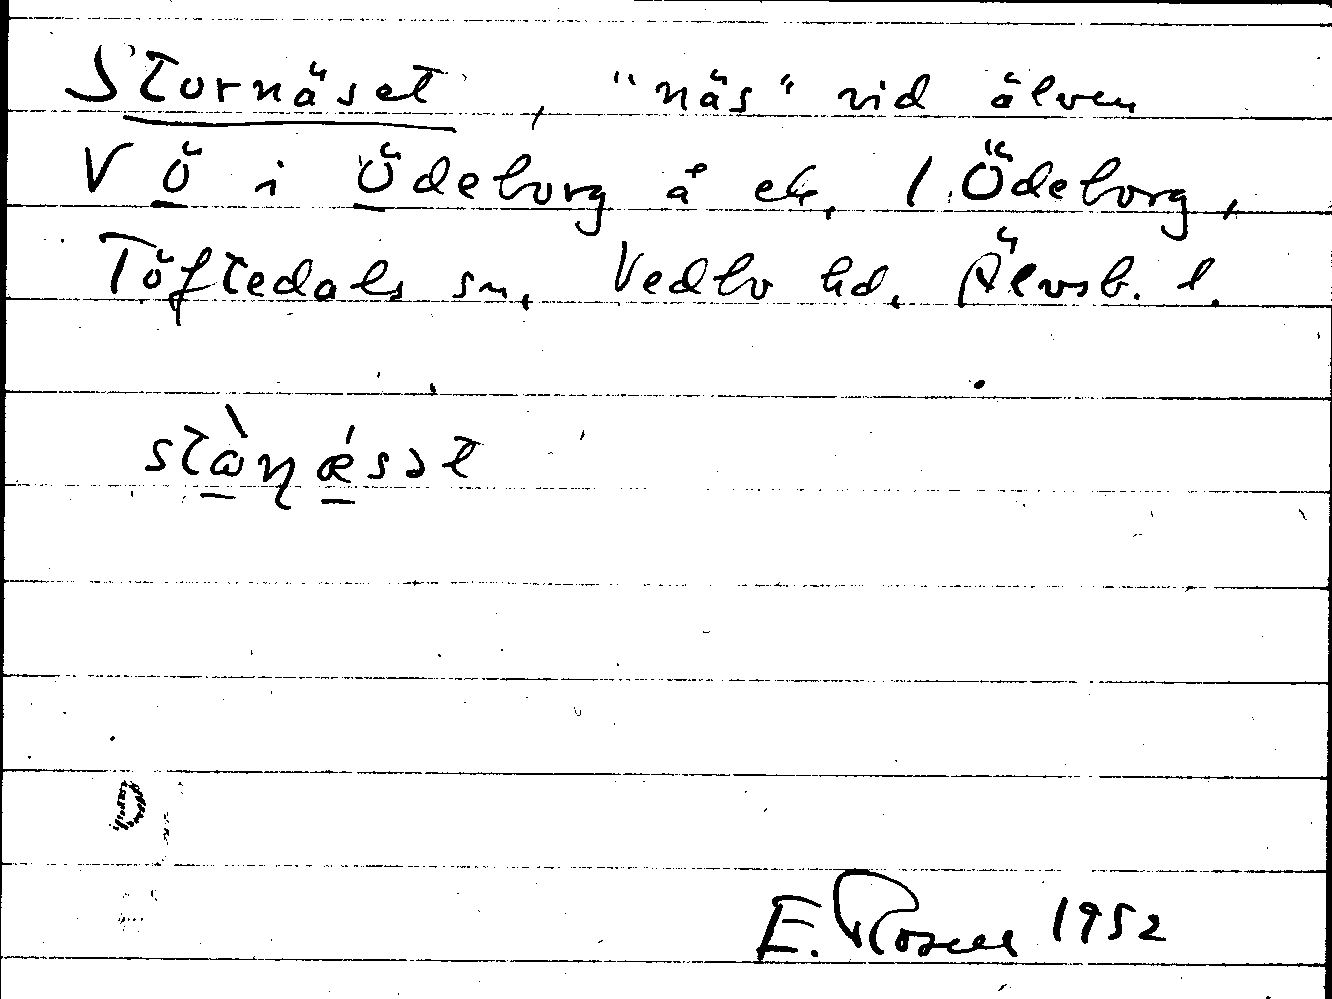 Stornäset, "näs" vid älven
V Ö i Ödeborg å ek. 1 Ödeborg,
Töftedals sn, Vedbo hd, Älvsb. l.
stὼŋǽsət
E. Rosell 1952